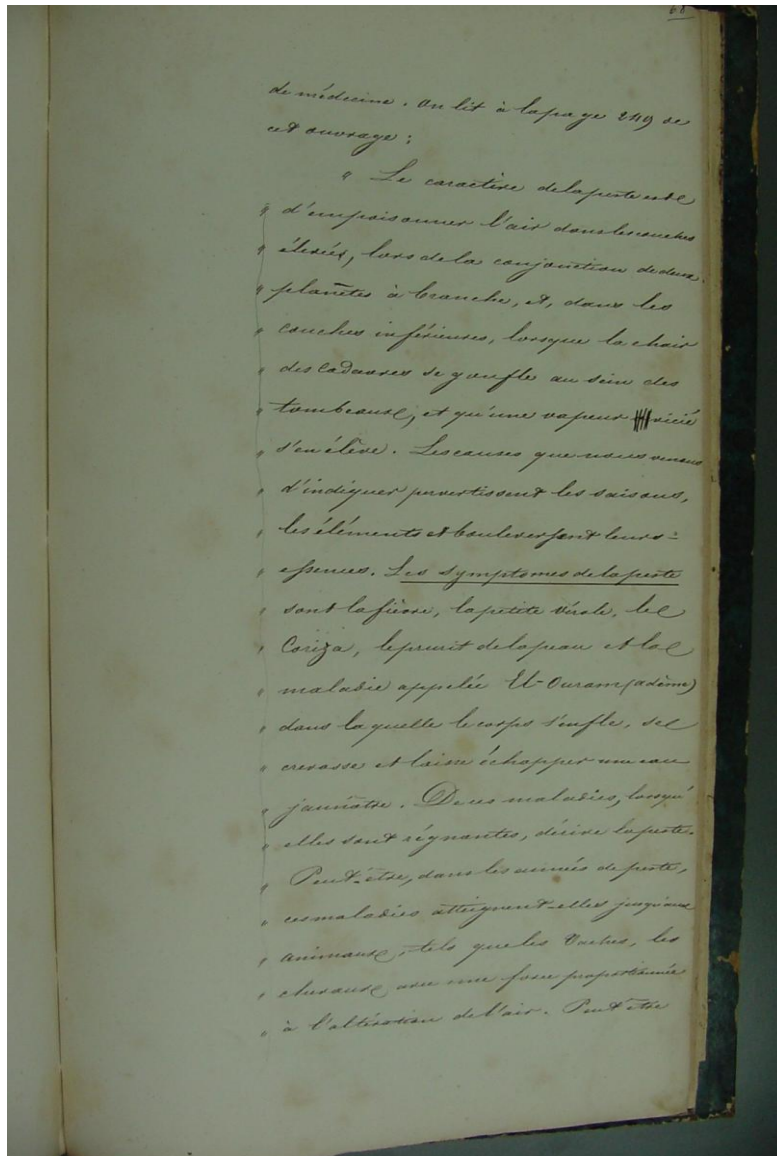 68
de médecine. On lit à la page 249 de
cet ouvrage :
" Le caractère de la peste est
" d'empoisonner l'air dans les couches
" élevées, lors de la conjonction de deux
" planètes à branche, et, dans les
" couches inférieures, lorsque la chair
" des Cadavres se gonfle au sein des
" tombeaux, et qu'une vapeur vicié
" s'en élève. Les causes que nous venons
" d'indiquer pervertissent les saisons,
" les éléments et bouleversent leurs =
" essences. Les symptomes de la peste
" sont la fièvre, la petite vérole, le
" Coriza, le prurit de la peau et la
" maladie appelée El-Ouram (adème)
" dans laquelle le corps s'enfle, se
" crevasse et laisse échapper une eau
" jaunâtre. De ces maladies, lorsqu'
" elles sont régnantes, dérive la peste.
" Peut-être, dans les années de peste,
" ces maladies atteignent-elles jusqu'aux
" animaux, tels que les Vaches, les
" chevaux avec une force proportionnée
" à l'altération de l'air. Peut être